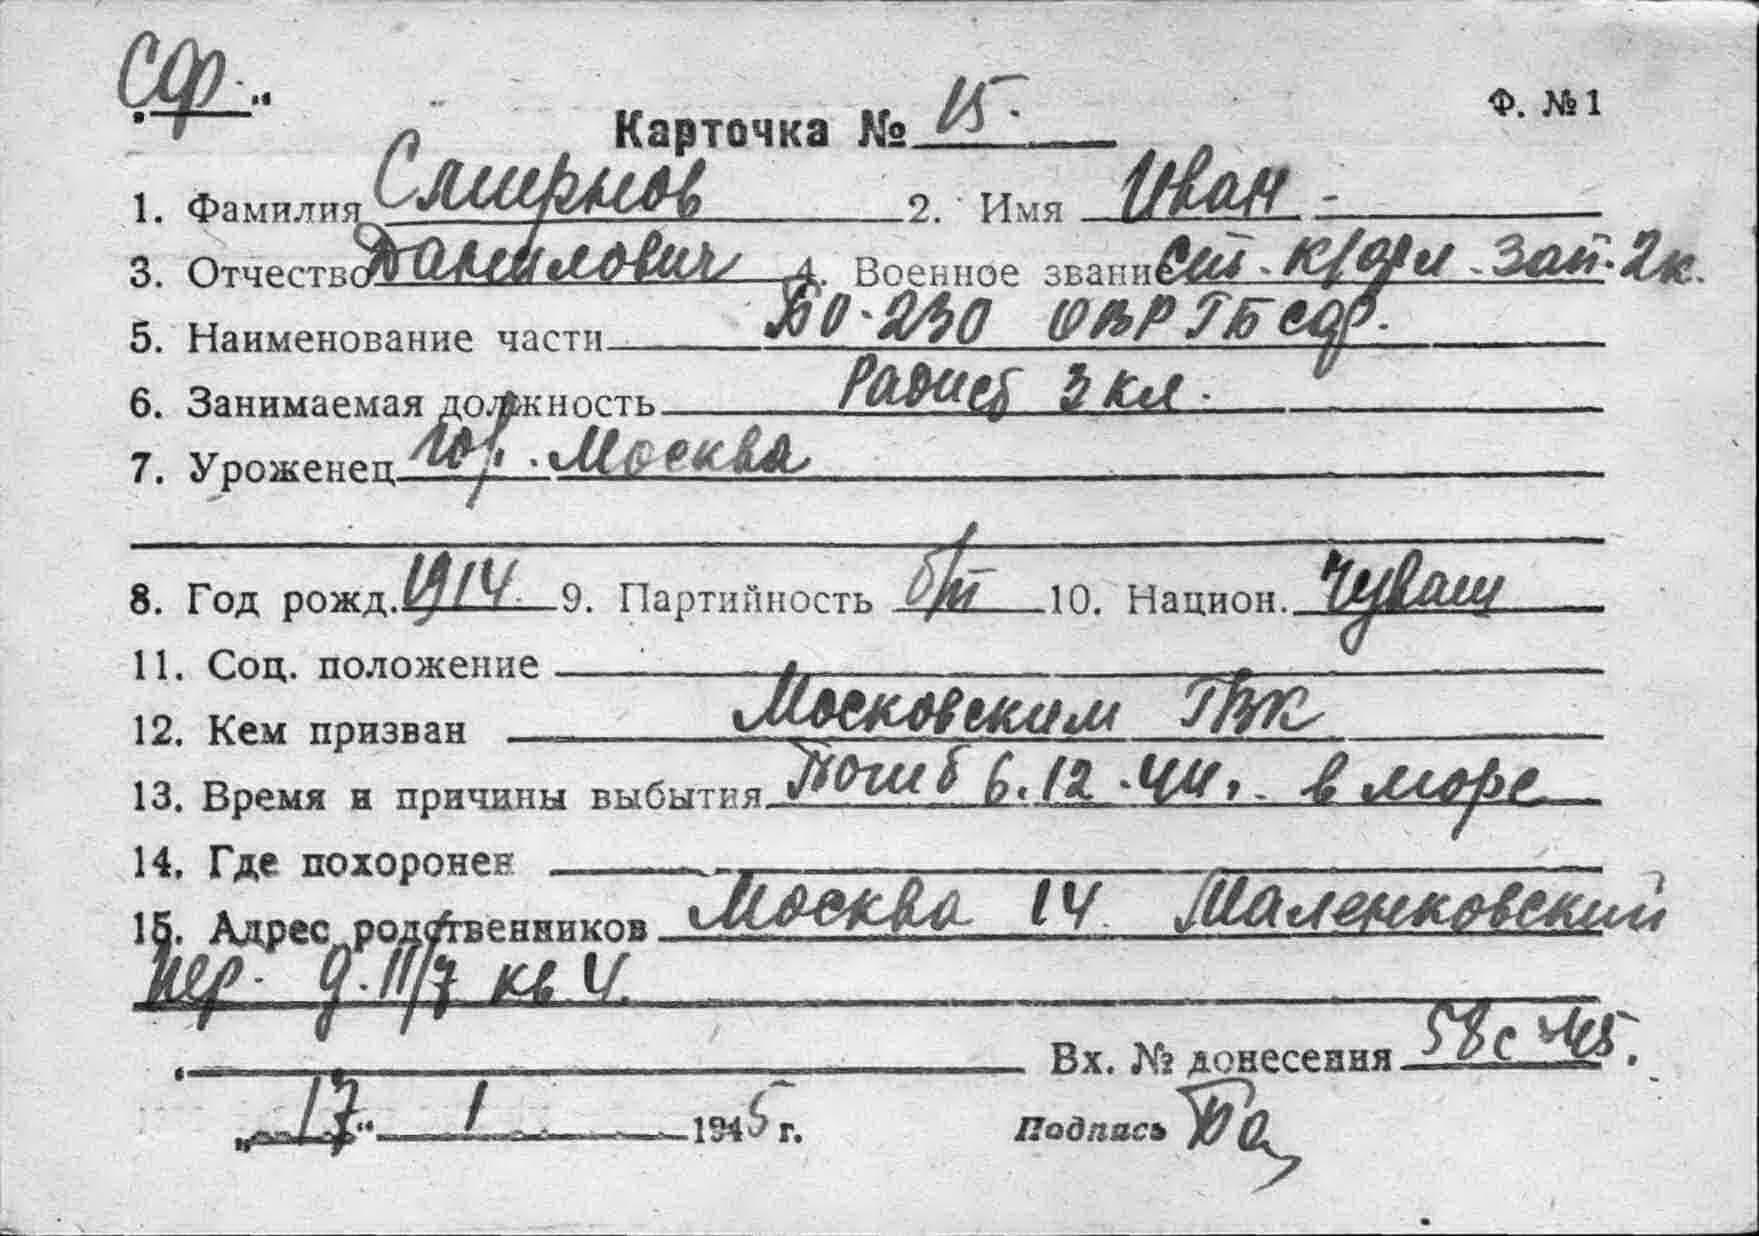 "СФ."
Ф. № 1
Карточка № 15.
1. Фамилия Смирнов 2. Имя Иван -
3. Отчество Данилович 4. Военное звание ст. к/фл. зап. 2 к.
5. Наименование части БО-230 ОВР ГБ СФ.
6. Занимаемая должность Радист 3 кл.
7. Уроженец гор. Москва
8. Год рожд. 1914. 9. Партийность б/п 10. Национ. Чуваш
11. Соц. положение
12. Кем призван Московским ГВК
13. Время и причины выбытия Погиб 6.12.44г. в море
14. Где похоронен
15. Адрес родственников Москва 14 Маленковский
пер. д. 11/7 кв 4.
Вх. № донесения 58с 45.
"17" 1 1945 г. Подпись